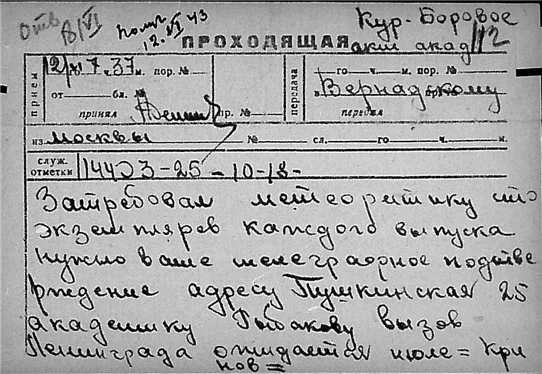 Отв 18/VI
Получ 12.VI 43
Кур-Боровое
акм акад /12
ПРОХОДЯЩАЯ
прием
12/ 7 ч. 37 м. пор. №
от бл. №
принял
пр. №
передача
го ч. м. пор. №
Вернадскому
передал
из Москвы № сл. го ч. м.
служ. отметки 14403-25-10-18-
Затребовал метеоритику сто
экземпляров каждого выпуска
нужно ваше телеграфное подтве
рждение адресу Пушкинская 25
академику Рыбакову вызов
Ленинграда ожидается июле = Кри
нов =